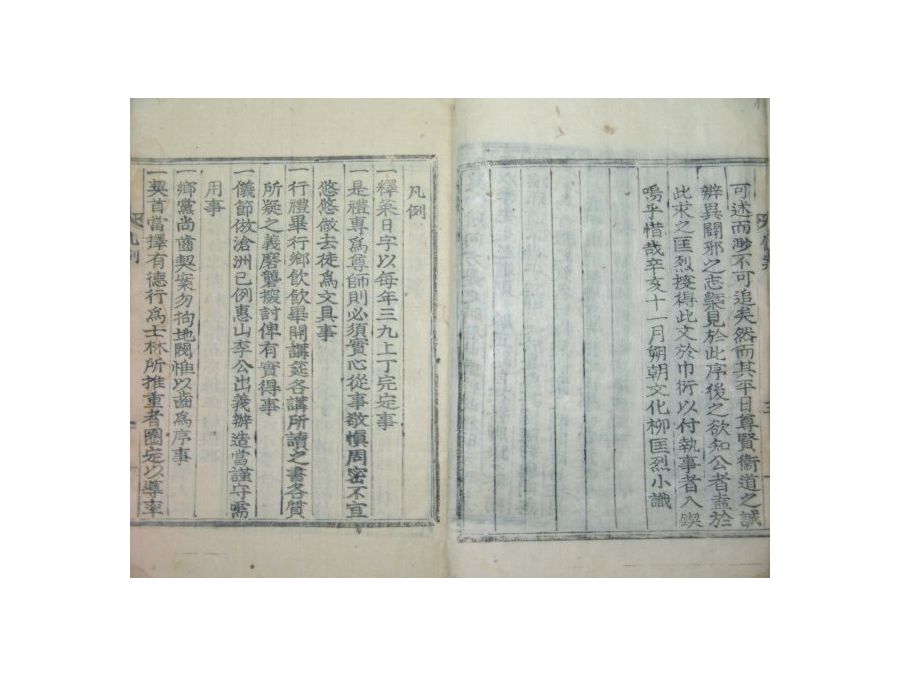 可述而渺不可追矣然而其平日尊賢衛道之誠
辨異闢邪之志槩見於此序後之欲知公者盍於
此求之匡烈搜得此文於巾衍以付執事者入鍥
嗚乎惜哉辛亥十一月朔朝文化柳匡烈小識
凡例
一釋菜日字以每年三九上丁完定事
一是禮專爲尊師則必須實心從事敬愼周密不宜
悠悠做去徒爲文具事
一行禮畢行鄉飮飮畢開講筵各講所讀之書各質
所疑之義磨礱揚討俾有實得事
一儀節倣滄洲已例惠山李公出義辦造當謹守需
用事
一鄉黨尚齒契案勿拘地閥惟以齒爲序事
一契首當擇有德行爲士林所推重者圈定以導率
凡例